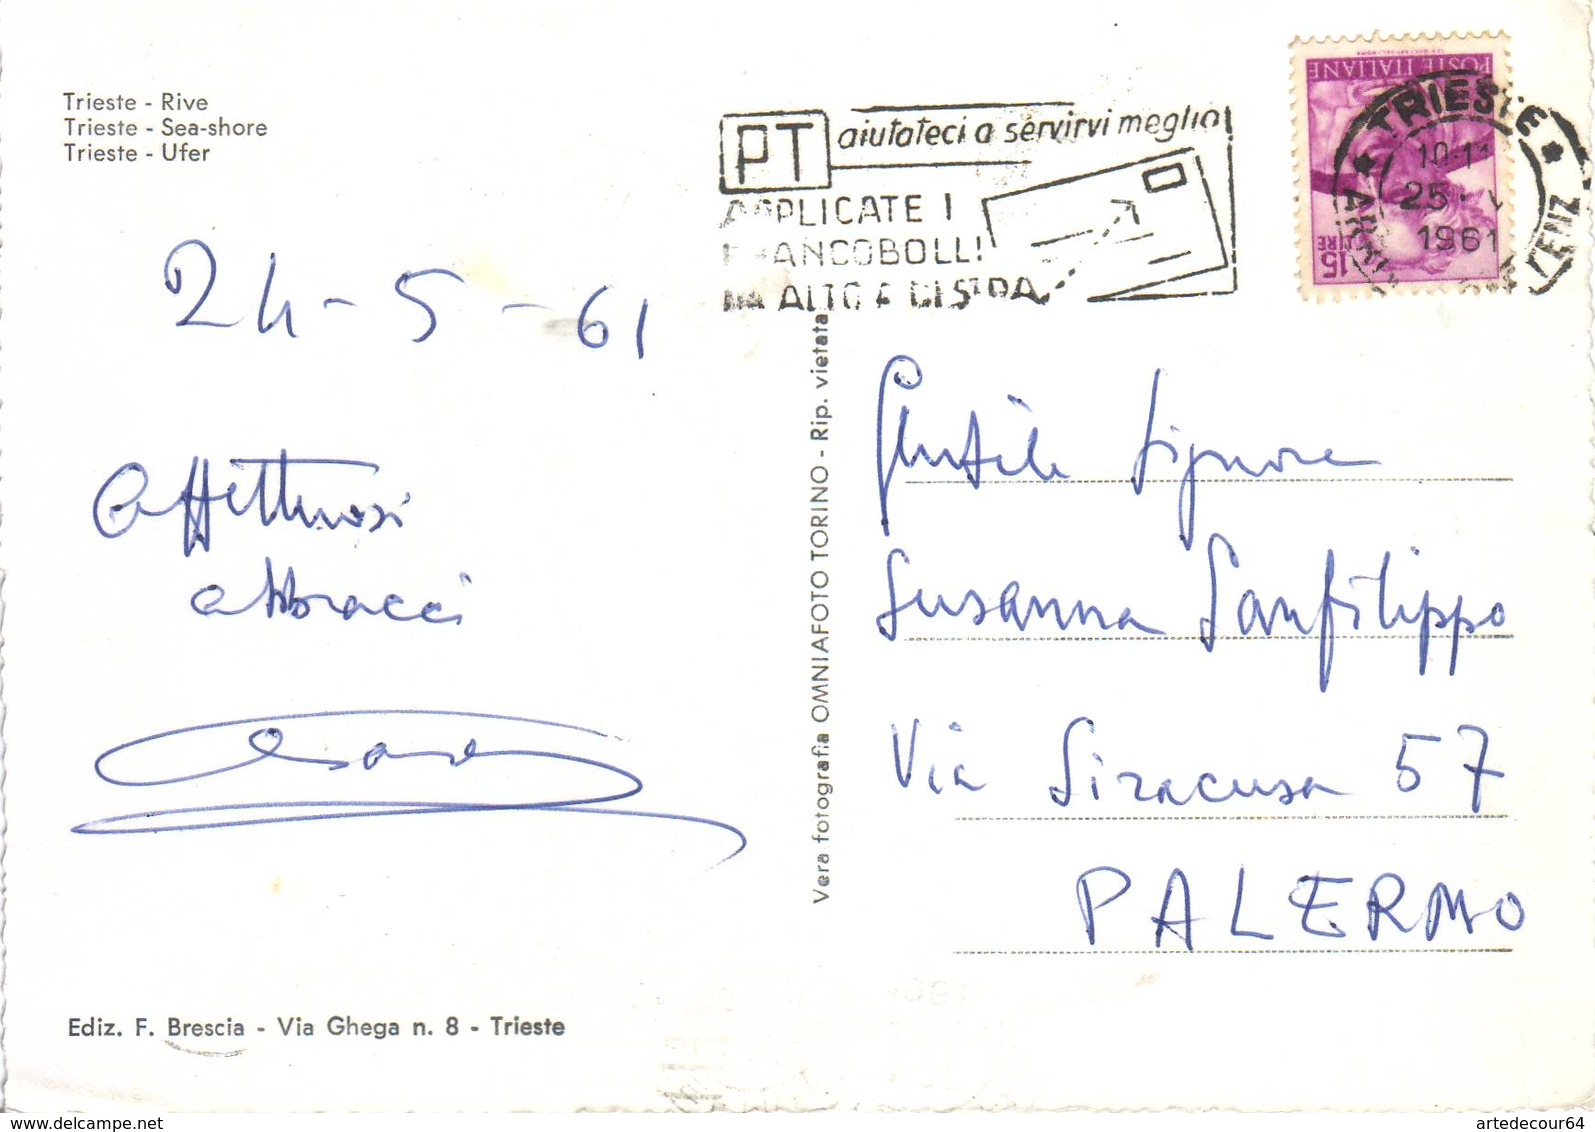 Trieste - Rive
Trieste - Sea-shore
Trieste - Ufer
PT aiutateci a servirvi meglio
APPLICATE I
FRANCOBOLLI
IN ALTO A DESTRA
POSTE ITALIANE
15 LIRE
TRIESTE
10-11
25
1961
24-5-61
Affettuosi
abbracci
Vera fotografia OMNIAFOTO TORINO - Rip. vietata
Gentile Signora
Susanna Sanfilippo
Via Siracusa 57
PALERMO
Ediz. F. Brescia - Via Ghega n. 8 - Trieste
https://www.delcampe.net
artedecour64